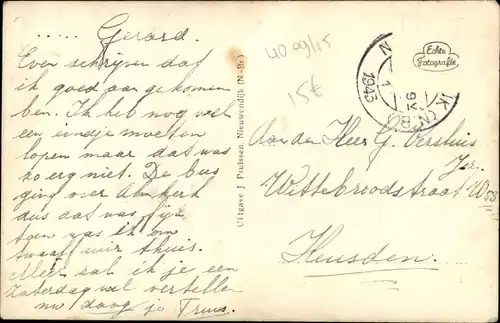 ..... Gerard.
Even schrijven dat
ik goed aan gekomen
ben. Ik heb nog wel
een eindje moeten
lopen maar dat was
zo erg niet. De bus
ging over Almkerk
dus dat was fijn
toen was ik om
twaalf uur thuis.
Meer zal ik je een
Zaterdag wel vertellen
nu daag je Truus.
Uitgave J. Pruissen, Nieuwendijk (N.-Br.)
4009/15
15€
1945
Echte
Fotografie
Aan den Heer G. Vershuis
Jzn.
Wittebroodstraat W 53
Heusden.